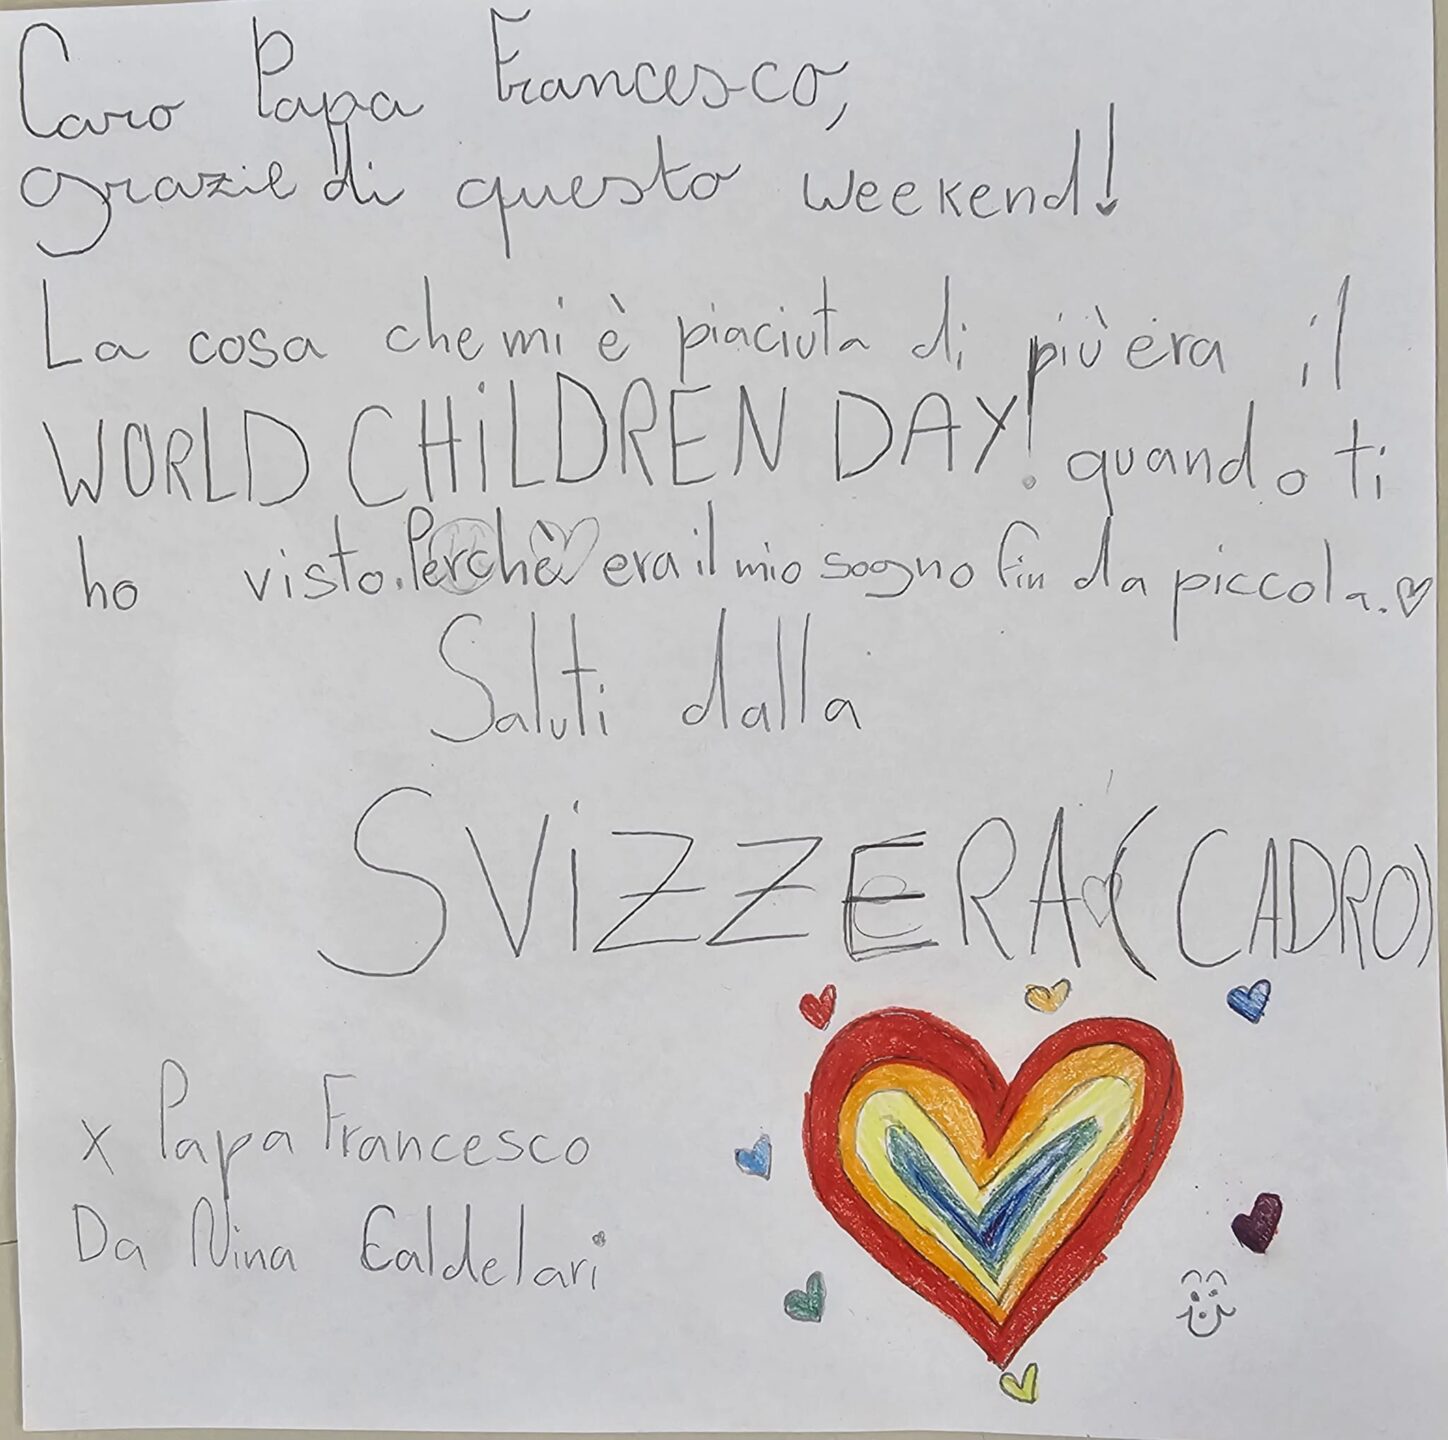 Caro Papa Francesco,
grazie di questo weekend!
La cosa che mi è piaciuta di più era il
WORLD CHiLDREN DAY! quando ti
ho visto. Perchè era il mio sogno fin da piccola.
Saluti dalla
SViZZERA (CADRO)
x Papa Francesco
Da Nina Caldelari